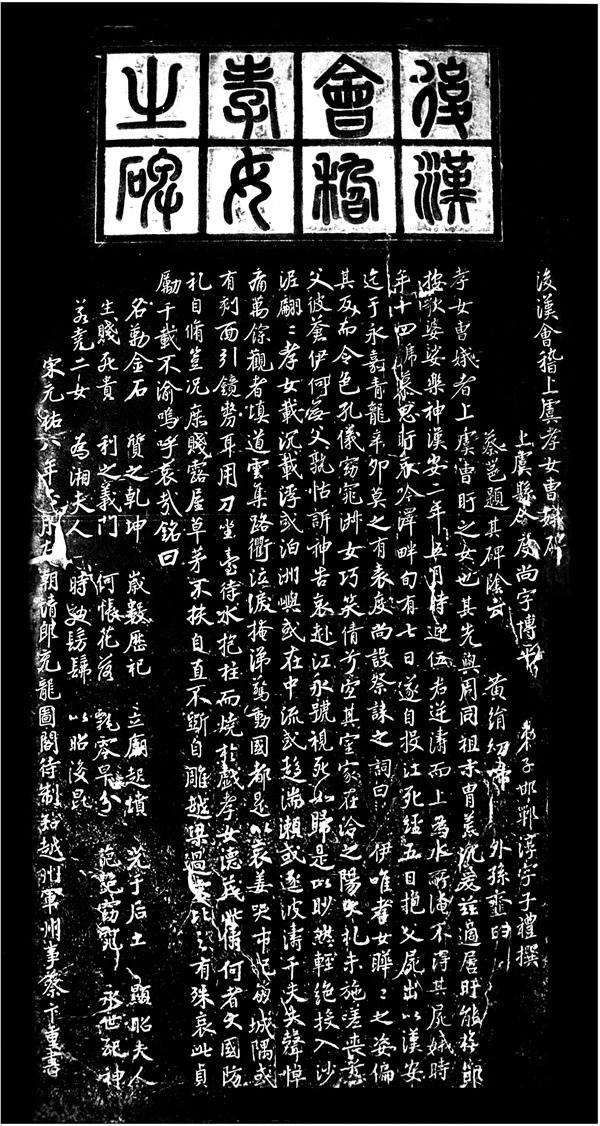 後漢
會稽
孝女
之碑
後漢會稽上虞孝女曹娥碑
上虞縣令度尚字博平 弟子邯鄲淳字子禮撰
蔡邕題其碑陰云 黃絹幼婦 外孫齏臼
孝女曹娥者上虞曹盱之女也其先與周同祖末胄荒沉爰茲適居盱能撫節
按歌婆娑樂神漢安二年五月時迎伍君逆濤而上為水所淹不得其屍娥時
年十四號慕思盱哀吟澤畔旬有七日遂自投江死經五日抱父屍出以漢安
迄于永嘉青龍辛卯莫之有表度尚設祭誄之詞曰 伊唯孝女曄〻之姿偏
其反而令色孔儀窈窕淑女巧笑倩兮宜其室家在洽之陽大礼未施嗟喪慈
父彼蒼伊何無父孰怙訴神告哀赴江永號視死如歸是以眇然輕絕投入沙
泥翩〻孝女載沉載浮或泊洲嶼或在中流或趍湍瀨或逐波濤千夫失聲悼
痛萬餘觀者填道雲集路衢泣淚掩涕驚動國都是以哀姜哭市杞崩城隅或
有刻面引鏡剺耳用刀坐臺待水抱柱而燒於戲孝女德茂此儔何者大國防
礼自脩豈況庶賤露屋草茅不扶自直不斲自雕越梁過宋比之有殊哀此貞
厲千載不渝嗚呼哀哉銘曰
名勒金石 質之乾坤 歲數歷祀 立廟起墳 光于后土 顯昭夫人
生賤死貴 利之義門 何悵花落 飄零早分 葩艷窈窕 永世配神
若堯二女 為湘夫人 時效髣髴 以昭後昆
宋元祐八年正月左朝請郎充龍圖閣待制知越州軍州事蔡卞重書